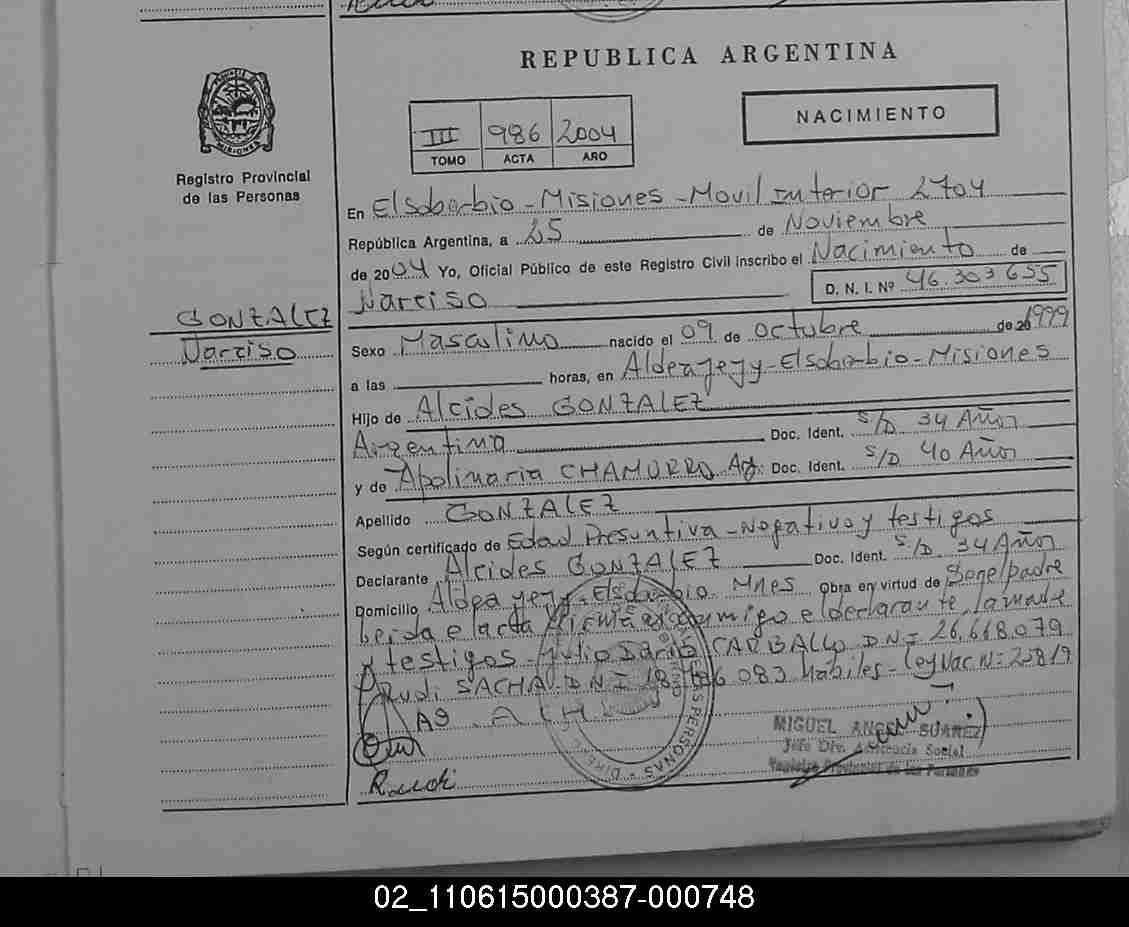 REPUBLICA ARGENTINA
NACIMIENTO
III 986 2004
TOMO ACTA AÑO
Registro Provincial
de las Personas
En Elsoberbio - Misiones - Movil Interior 2704
República Argentina, a 25 de Noviembre
de 2004 Yo, Oficial Público de este Registro Civil inscribo el Nacimiento de
Narciso D. N. I. Nº 46.303.655
GONZALEZ
Narciso
Sexo Masculino nacido el 09 de octubre de 1999
a las horas, en Aldea yejy - Elsoberbio - Misiones
Hijo de Alcides GONZALEZ
Argentino Doc. Ident. S/D 34 Años
y de Apolinaria CHAMORRO Ag. Doc. Ident. S/D 40 Años
Apellido GONZALEZ
Según certificado de Edad Presuntiva - Negativo y testigos
Declarante Alcides GONZALEZ Doc. Ident. S/D. 34 Años
Domicilio Aldea yejy - Elsoberbio Mnes Obra en virtud de Son el padre
leida el acta firma conmigo el declarante, la madre
y testigos - Julio Dario CARBALLO D.N.I 26.668.079
Rudi SACHA D.N.I 083 habiles - Ley Nac. Nº 25819
MIGUEL ANGEL SUAREZ
Jefe Div. Asistencia Social
Registro Provincial de las Personas
Rudi
02_110615000387-000748